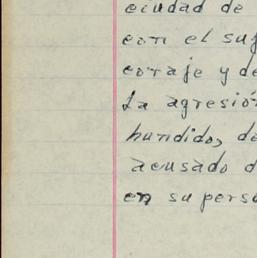 ciudad de
con el suf
coraje y de
La agresión
hundido, de
acusado d
en su perso